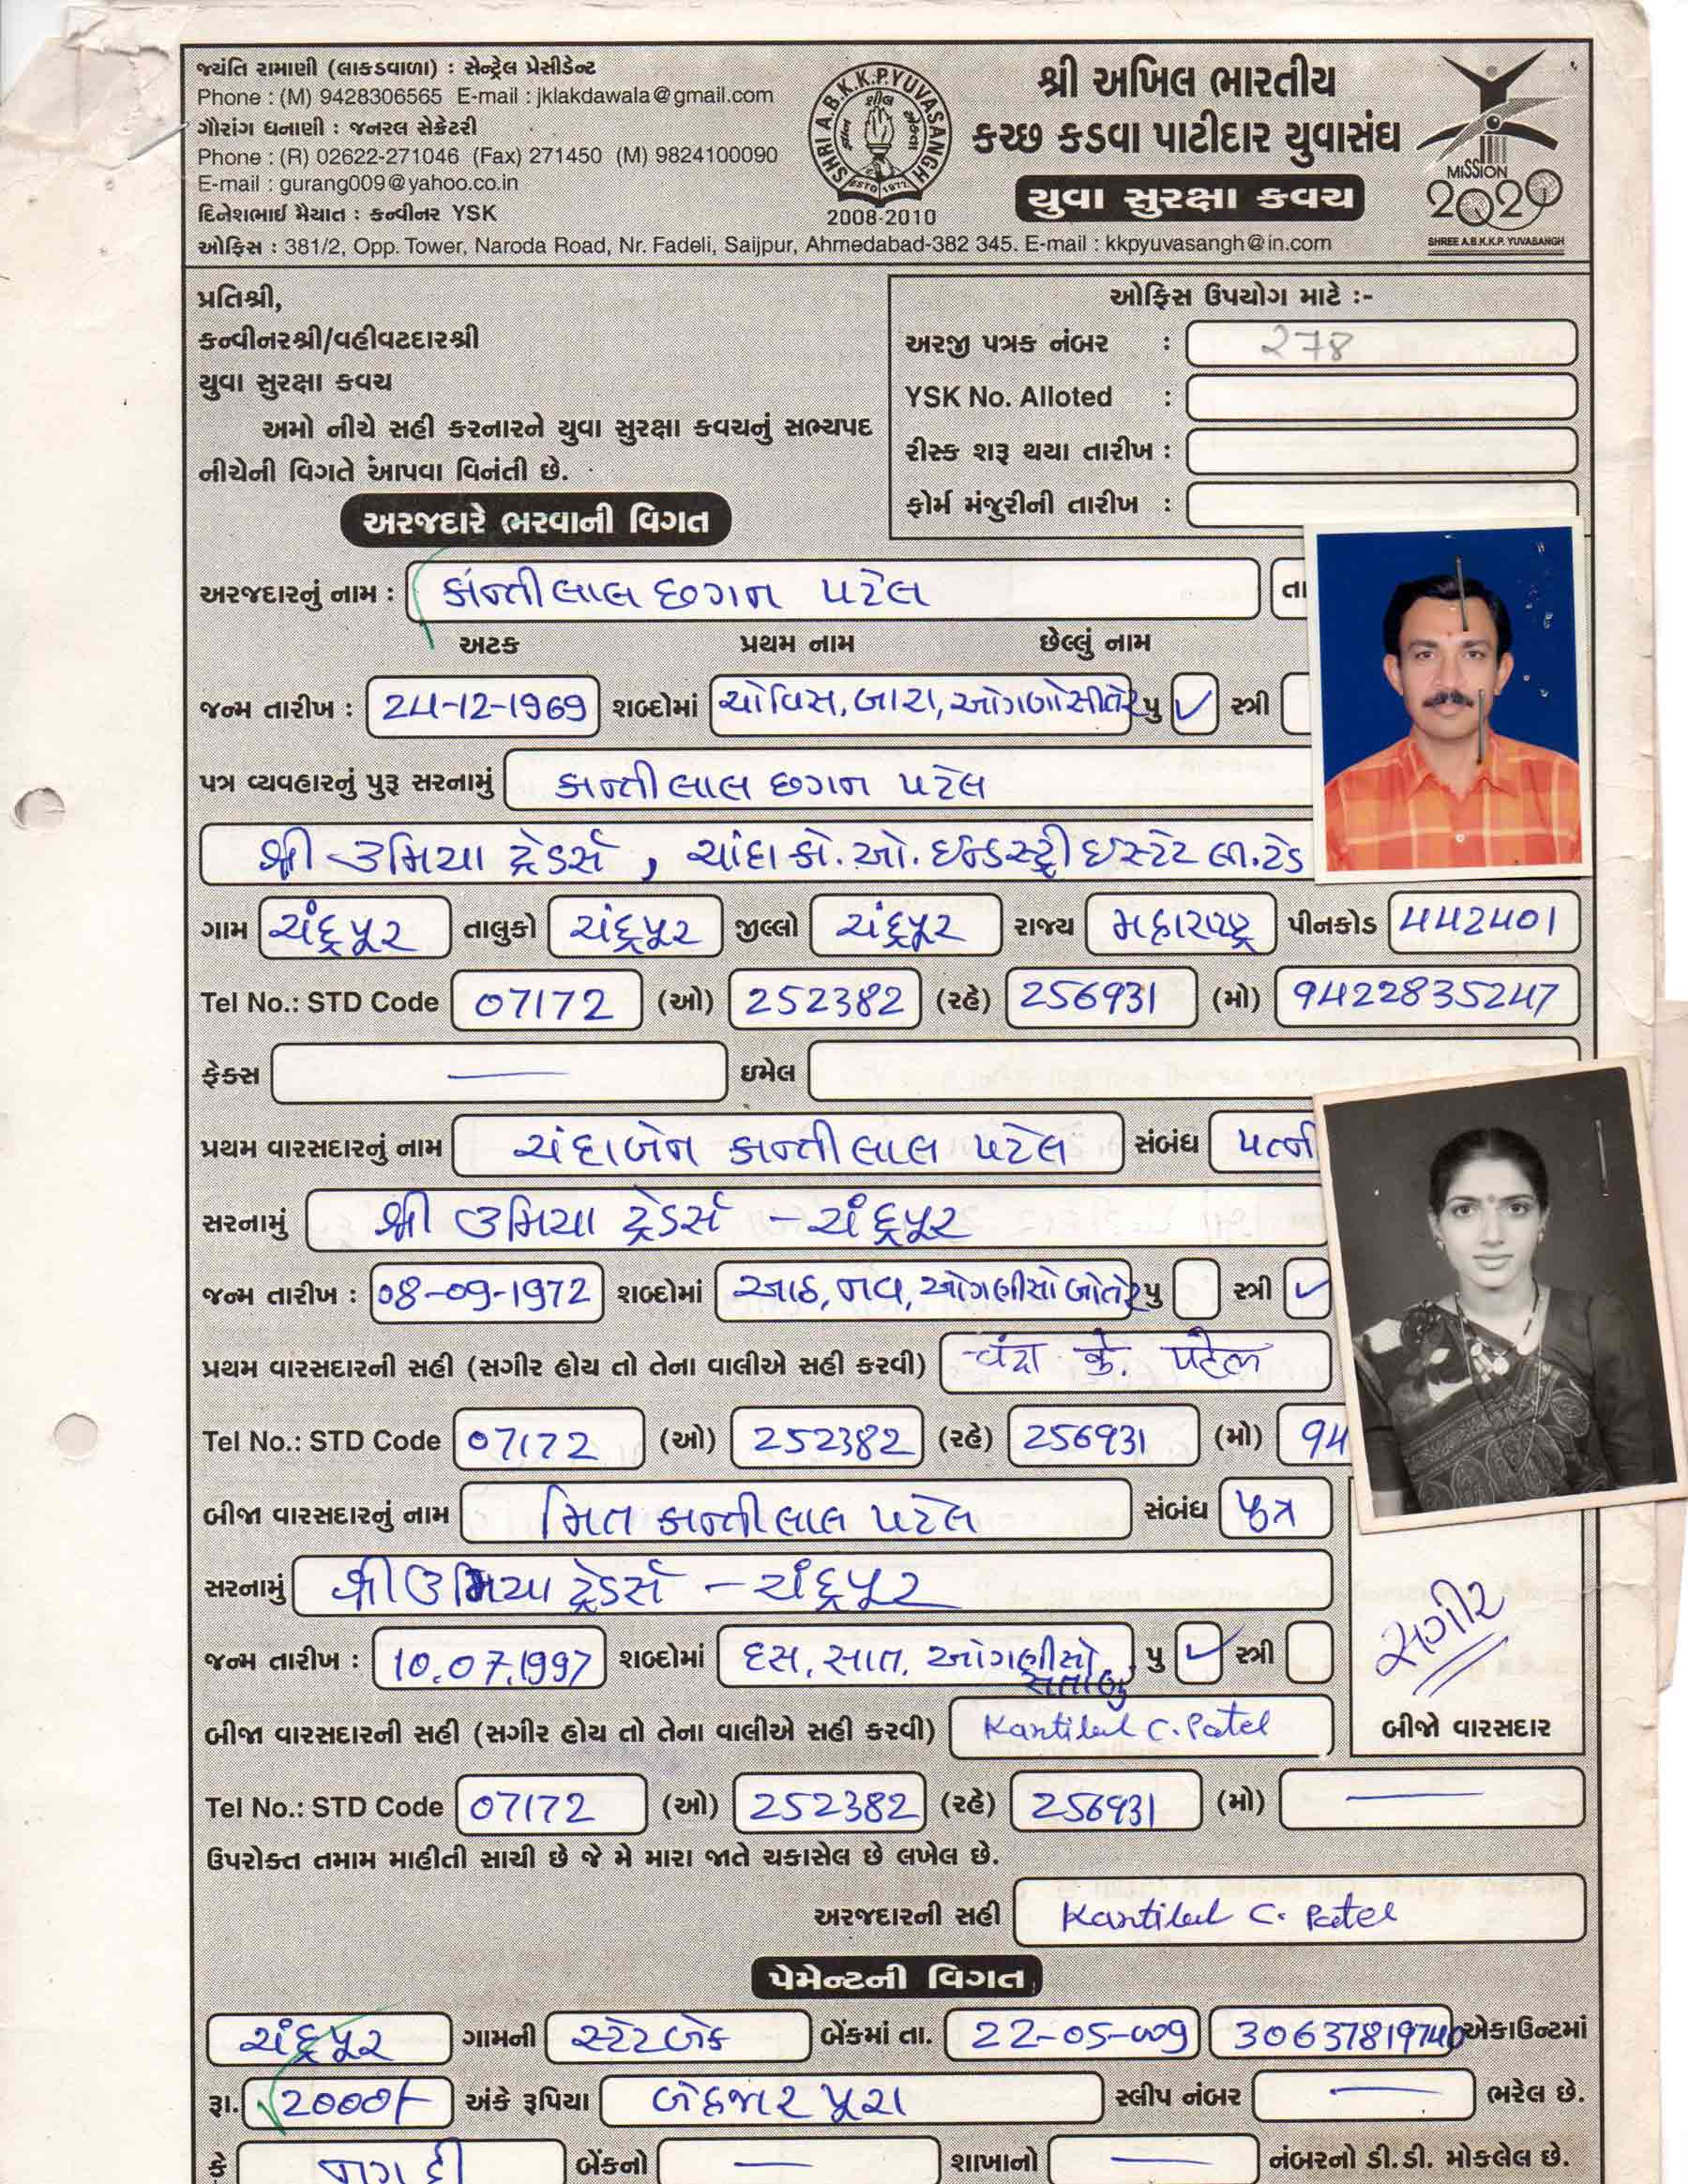 જયંતિ રામાણી (લાકડવાળા) : સેન્ટ્રેલ પ્રેસીડેન્ટ
Phone : (M) 9428306565 E-mail : jklakdawala@gmail.com
ગૌરાંગ ધનાણી : જનરલ સેક્રેટરી
Phone : (R) 02622-271046 (Fax) 271450 (M) 9824100090
E-mail : gurang009@yahoo.co.in
દિનેશભાઈ મૈયાત : કન્વીનર YSK
SHRI A.B.K.K.P. YUVASANGH
શીલ
ESTD 1972
2008-2010
શ્રી અખિલ ભારતીય
કચ્છ કડવા પાટીદાર યુવાસંઘ
યુવા સુરક્ષા કવચ
MISSION
2020
SHREE A.B.K.K.P. YUVASANGH
ઓફિસ : 381/2, Opp. Tower, Naroda Road, Nr. Fadeli, Saijpur, Ahmedabad-382 345. E-mail : kkpyuvasangh@in.com
પ્રતિશ્રી,
કન્વીનરશ્રી/વહીવટદારશ્રી
યુવા સુરક્ષા કવચ
અમો નીચે સહી કરનારને યુવા સુરક્ષા કવચનું સભ્યપદ
નીચેની વિગતે આપવા વિનંતી છે.
ઓફિસ ઉપયોગ માટે :-
અરજી પત્રક નંબર : 278
YSK No. Alloted :
રીસ્ક શરૂ થયા તારીખ :
ફોર્મ મંજુરીની તારીખ :
અરજદારે ભરવાની વિગત
અરજદારનું નામ : કાંન્તીલાલ છગન પટેલ તા
અટક પ્રથમ નામ છેલ્લું નામ
જન્મ તારીખ : 24-12-1969 શબ્દોમાં ચોવિસ, બારા, ઓગણોસીતેર પુ ✓ સ્ત્રી
પત્ર વ્યવહારનું પુરૂ સરનામું કાન્તીલાલ છગન પટેલ
શ્રી ઉમિયા ટ્રેડર્સ, ચાંદા કો. ઓ. ઈન્ડસ્ટ્રી ઈસ્ટેટ લી.ટેડ
ગામ ચંદ્રપૂર તાલુકો ચંદ્રપૂર જીલ્લો ચંદ્રપૂર રાજ્ય મહારાષ્ટ્ર પીનકોડ 442401
Tel No.: STD Code 07172 (ઓ) 252382 (રહે) 256931 (મો) 9422835247
ફેક્સ — ઇમેલ
પ્રથમ વારસદારનું નામ ચંદાબેન કાન્તીલાલ પટેલ સંબંધ પત્ની
સરનામું શ્રી ઉમિયા ટ્રેડર્સ - ચંદ્રપૂર
જન્મ તારીખ : 08-09-1972 શબ્દોમાં આઠ, નવ, ઓગણીસો બોતેર પુ સ્ત્રી ✓
પ્રથમ વારસદારની સહી (સગીર હોય તો તેના વાલીએ સહી કરવી) चंदा के. पटेल
Tel No.: STD Code 07172 (ઓ) 252382 (રહે) 256931 (મો) 94
બીજા વારસદારનું નામ મિત કાન્તીલાલ પટેલ સંબંધ પુત્ર
સરનામું શ્રી ઉમિયા ટ્રેડર્સ - ચંદ્રપૂર
જન્મ તારીખ : 10.07.1997 શબ્દોમાં દસ, સાત, ઓગણીસો સતાણુ પુ ✓ સ્ત્રી
સગીર
બીજા વારસદારની સહી (સગીર હોય તો તેના વાલીએ સહી કરવી) Kantilal C. Patel
બીજો વારસદાર
Tel No.: STD Code 07172 (ઓ) 252382 (રહે) 256931 (મો) —
ઉપરોક્ત તમામ માહીતી સાચી છે જે મે મારા જાતે ચકાસેલ છે લખેલ છે.
અરજદારની સહી Kantilal C. Patel
પેમેન્ટની વિગત
ચંદ્રપૂર ગામની સ્ટેટ બેંક બેંકમાં તા. 22-05-009 30637819740 એકાઉન્ટમાં
રૂા. 2000/- અંકે રૂપિયા બેહજાર પૂરા સ્લીપ નંબર — ભરેલ છે.
કે નગદી બેંકનો — શાખાનો — નંબરનો ડી.ડી. મોકલેલ છે.